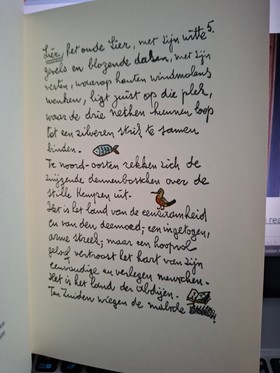 5.
Lier, het oude Lier, met zijn witte
gevels en blozende daken, met zijn
vesten, waarop houten windmolens
wenken, ligt juist op die plek,
waar de drie Nethen hunnen loop
tot een zilveren strik te samen
binden.
Te noord-oosten rekken zich de
zwijgende dennenbosschen over de
stille Kempen uit.
Het is het land van de eenzaamheid
en van den deemoed; een ingetogen,
arme streek; maar een hoopvol
geloof vertroost het hart van zijn
eenvoudige en verlegen menschen.
Het is het land der abdijen.
Ten Zuiden wiegen de malsche